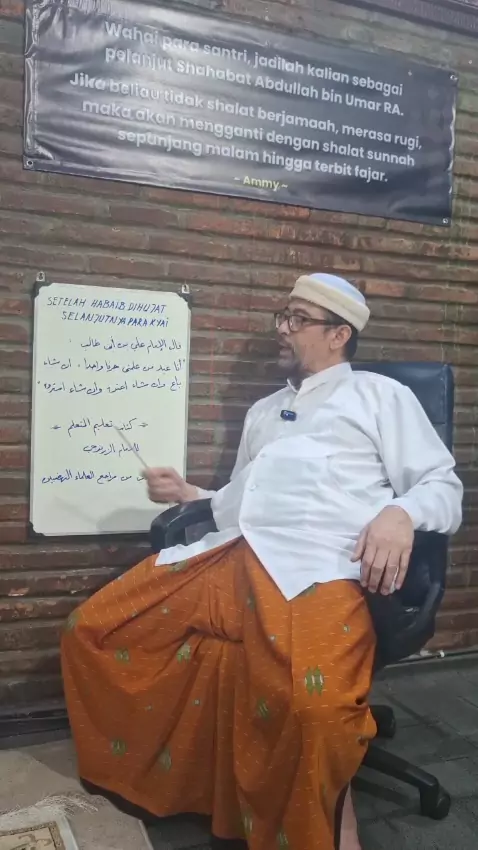 Wahai para santri, jadilah kalian sebagai
pelanjut Shahabat Abdullah bin Umar RA.
Jika beliau tidak shalat berjamaah, merasa rugi,
maka akan mengganti dengan shalat sunnah
sepunjang malam hingga terbit fajar.
~ Ammy ~
SETELAH HABAIB DIHUJAT
SELANJUTNYA PARA KYAI
قال الإمام علي بن أبى طالب .
"أنا عبد من علمنى حرفا واحدا . إن شاء
باع وإن شاء اعتق وإن شاء استرق"
* كتاب تعليم المتعلم *
للإمام الزرنوجي
من مراجع العلماء النهضيين